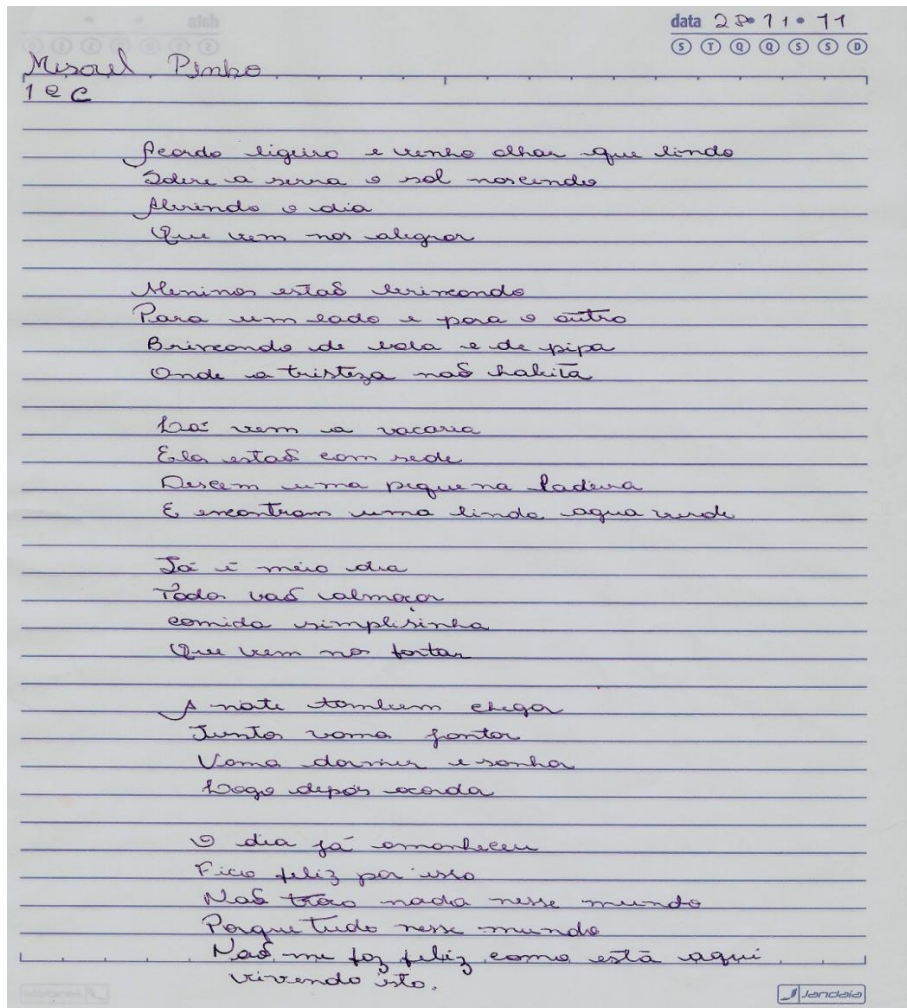 data 28•11•11
S T Q Q S S D
Misael Pinho
1º C
Acordo ligeiro e venho olhar que lindo
Sobre a serra o sol nascendo
Abrindo o dia
Que vem nos alegrar
Meninos estaõ brincando
Para um lado e para o outro
Brincando de bola e de pipa
Onde a tristeza naõ habita
Lá vem a vacaria
Elas estaõ com sede
Descem uma pequena ladeira
E encontram uma linda agua verde
Já é meio dia
Todos vaõ almoçar
comida simplisinha
Que vem nos fartar
A noite tambem chega
Juntos vama jantar
Vama dormir e sonha
Logo depois acorda
O dia já amanheceu
Fico feliz por isso
Naõ troco nada nesse mundo
Porque tudo nesse mundo
Naõ me faz feliz como está aqui
vivendo isto.
Jandaia